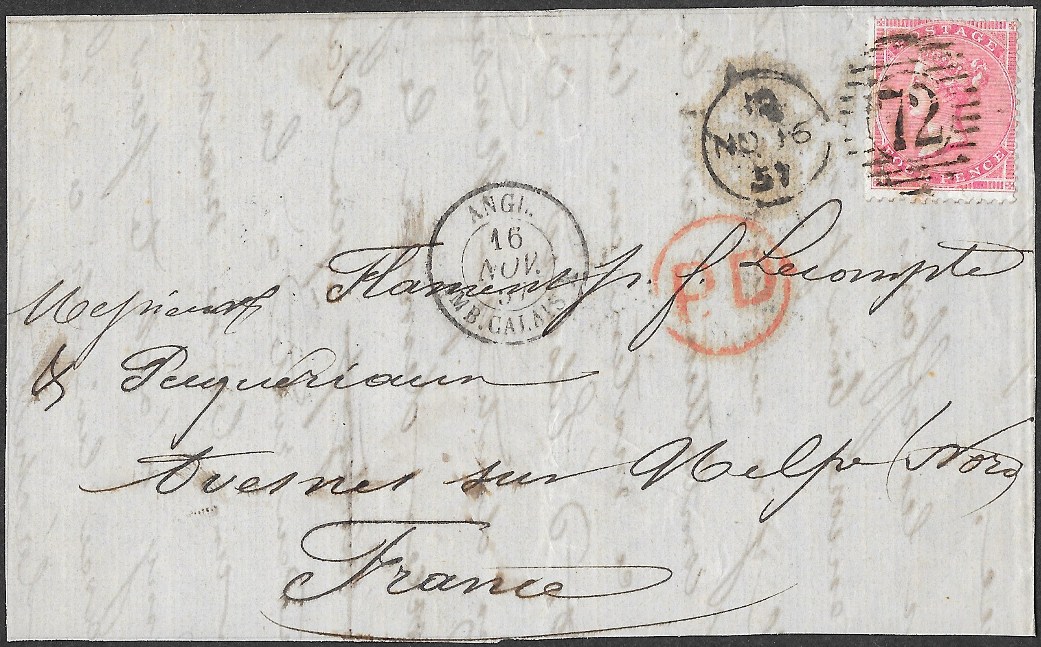 POSTAGE
72
FOUR PENCE
NO 16
57
ANGL.
16
NOV.
57
AMB. CALAIS
P.D
Messieurs Flament p. f. Lecompte
& 
Avesnes sur Helpe (Nord)
France